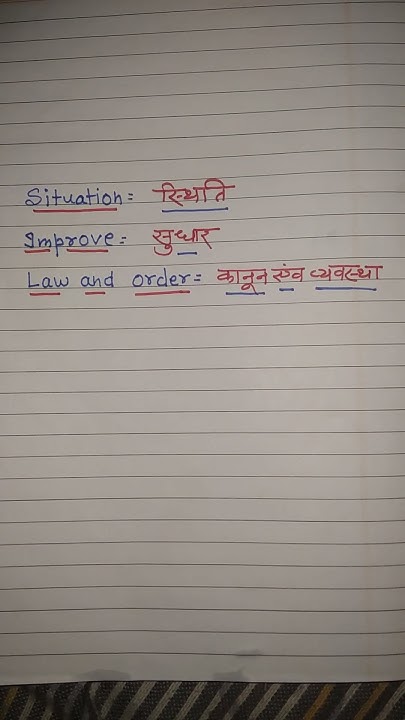 Situation = स्थिति
Improve = सुधार
Law and order = कानून एंव व्यवस्था